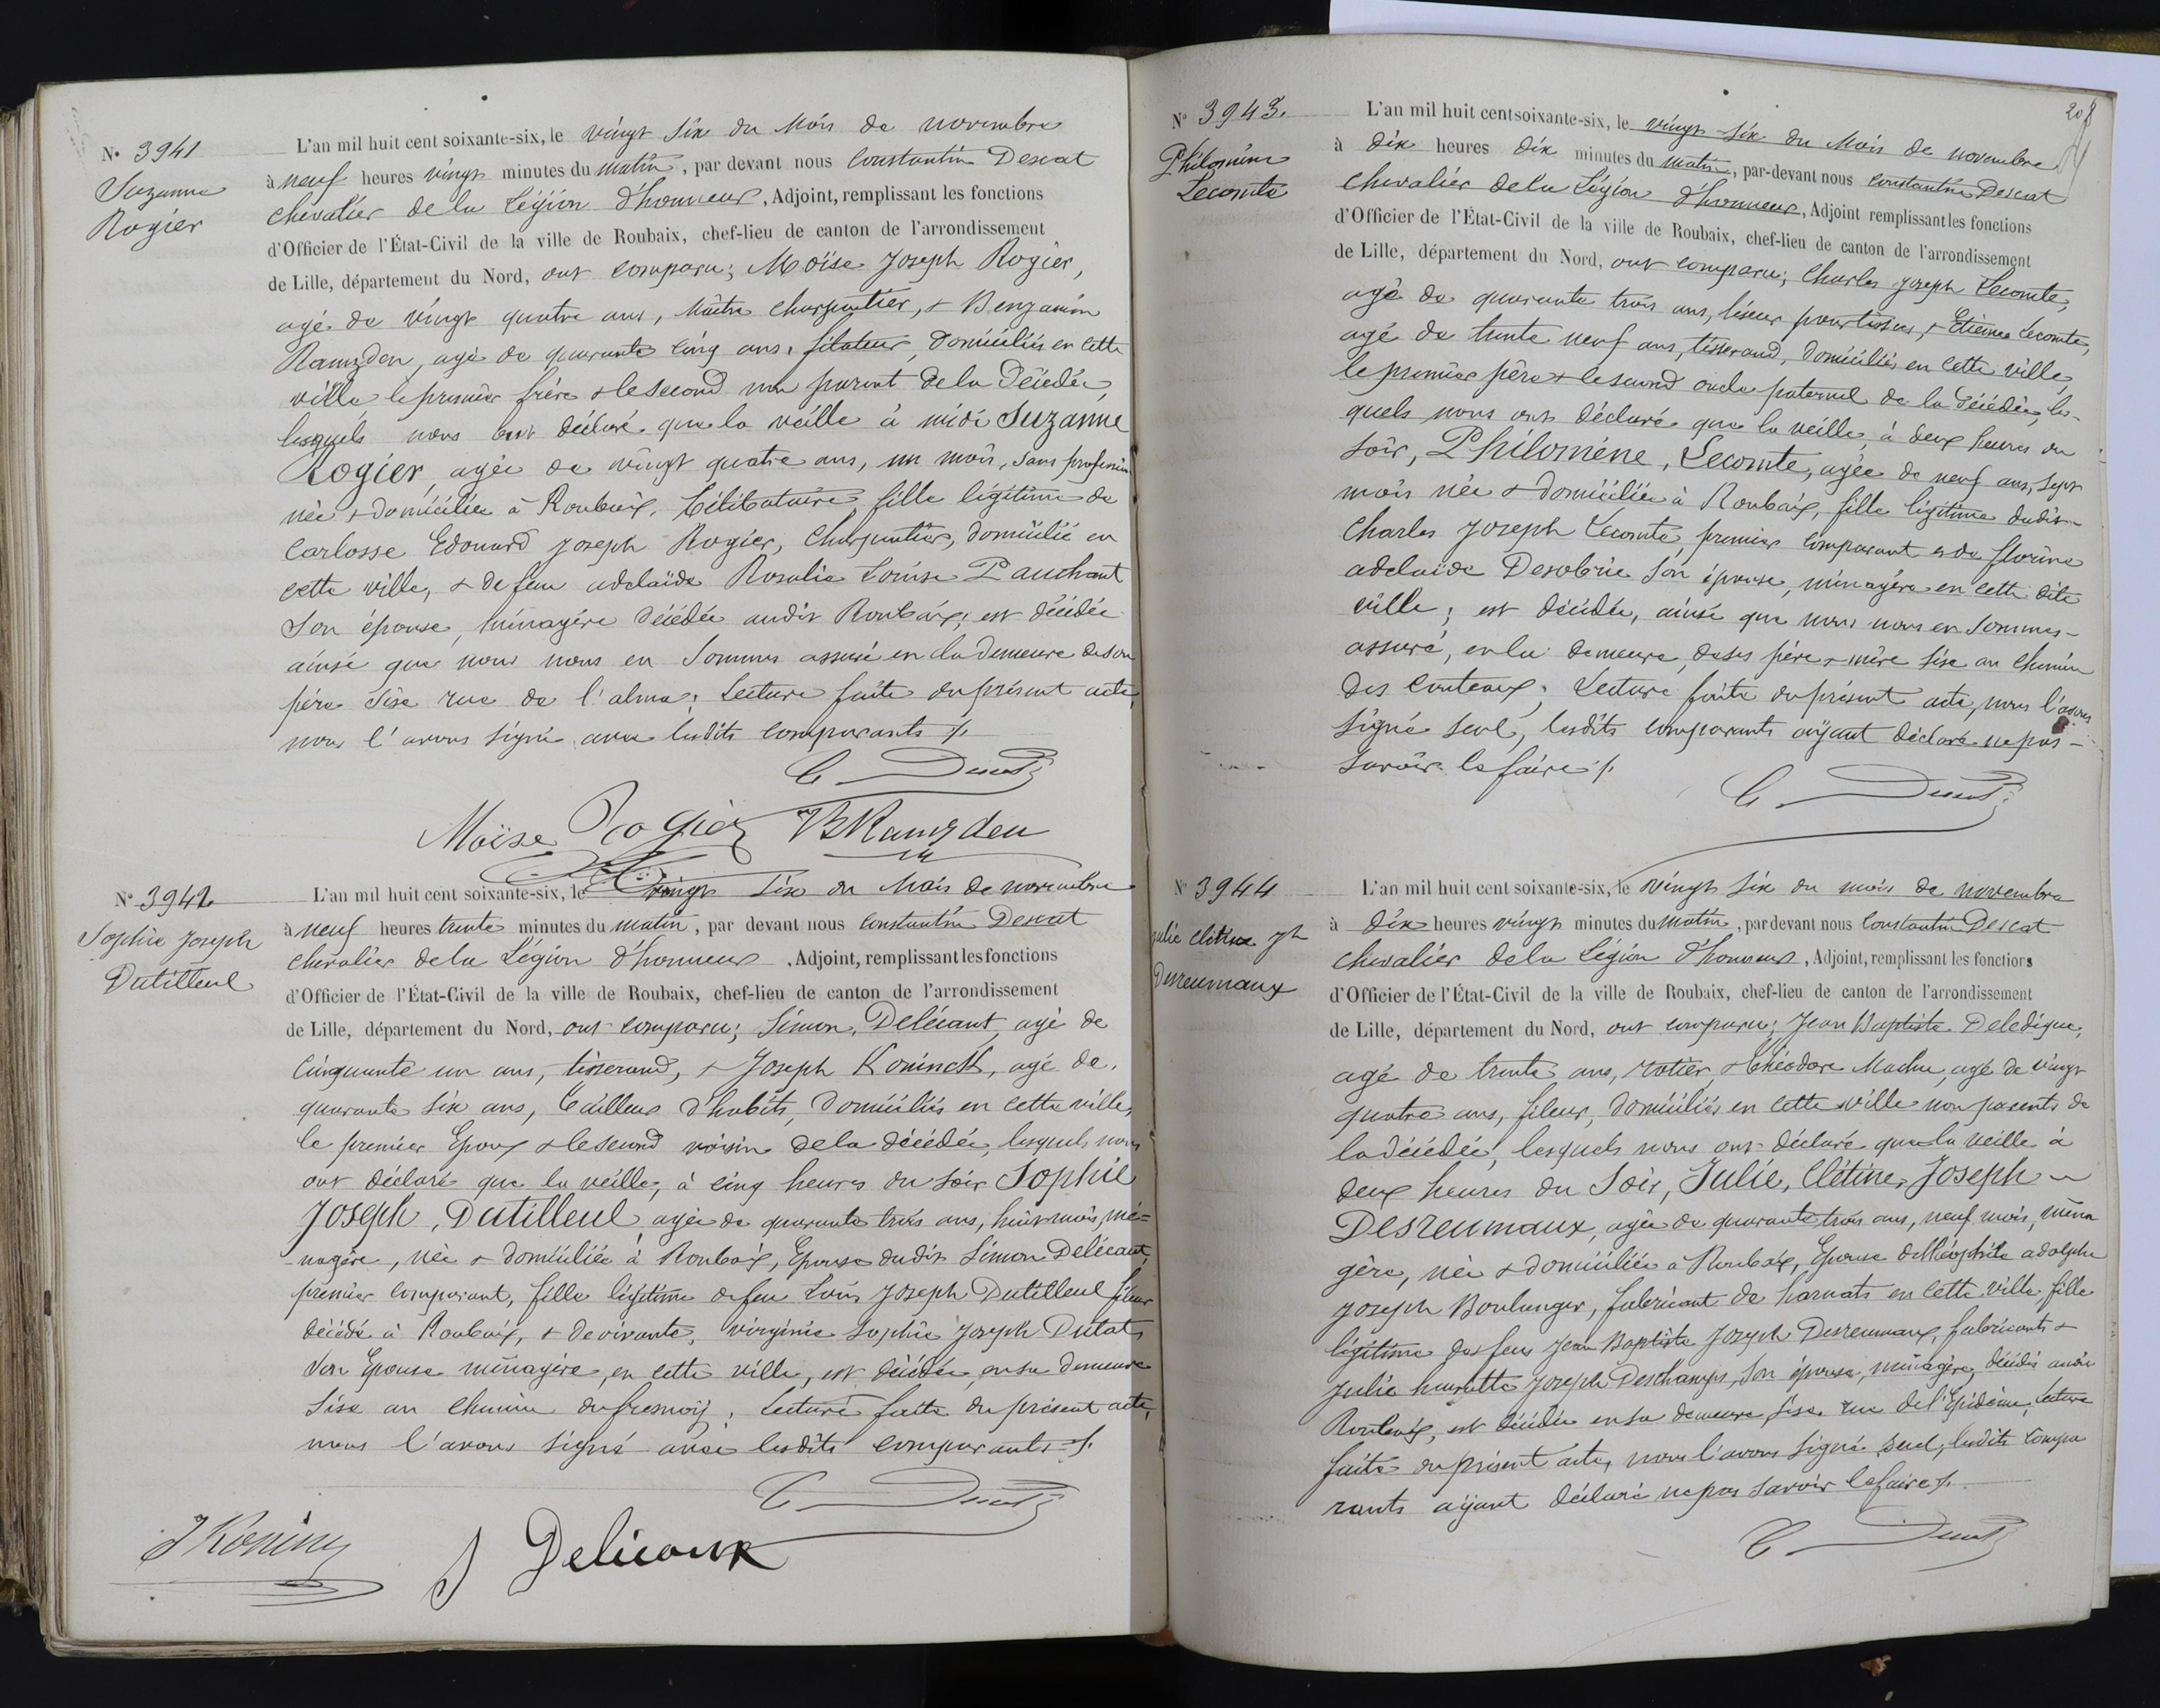 N° 3941
Suzanne
Rogier
L'an mil huit cent soixante-six, le vingt six du mois de novembre
à neuf heures vingt minutes du matin, par devant nous Constantin Descat
chevalier de la Légion d'honneur, Adjoint, remplissant les fonctions
d'Officier de l'État-Civil de la ville de Roubaix, chef-lieu de canton de l'arrondissement
de Lille, département du Nord, ont comparu; Moïse Joseph Rogier,
agé de vingt quatre ans, Maître charpentier, & Benjamin
Ramzden, agé de quarante cinq ans, filateur, domiciliés en cette
ville le premier frère & le second non parent de la Décédée,
lesquels nous ont déclaré que la veille à midi Suzanne
Rogier, agée de vingt quatre ans, un mois, sans profession
née & domiciliée à Roubaix, Célibataire, fille légitime de
Carlosse Edouard Joseph Rogier, Charpentier, domicilié en
cette ville, & de feue adelaïde Rosalie Louise Pauchant
son épouse, ménagère décédée audit Roubaix; est décédée
ainsi que nous nous en sommes assuré en la demeure de son
père sise rue de l'alma; Lecture faite du présent acte,
nous l'avons signé avec lesdits comparants /.
C Descat
Moïse Rogier BRamzden
N° 3942
Sophie Joseph
Dutilleul
L'an mil huit cent soixante-six, le vingt six du Mois de novembre
à neuf heures trente minutes du matin, par devant nous Constantin Descat
chevalier de la Légion d'honneur, Adjoint, remplissant les fonctions
d'Officier de l'État-Civil de la ville de Roubaix, chef-lieu de canton de l'arrondissement
de Lille, département du Nord, ont comparu; Simon, Delécant, agé de
cinquante un ans, tisserand, & Joseph Koninck, agé de
quarante six ans, tailleur d'habits, domiciliés en cette ville,
le premier Epoux & le second voisin de la décédée, lesquels nous
ont déclaré que la veille, à cinq heures du soir Sophie
Joseph, Dutilleul agée de quarante trois ans, huit mois, mé=
nagère, née & domiciliée à Roubaix, Epouse dudit Simon Delécant,
premier comparant, fille légitime de feu Louis Joseph Dutilleul fileur
décédé à Roubaix, & de vivante, virginie Sophie Joseph Dutat,
son Epouse ménagère, en cette ville, est décédée, en sa demeure
sise au chemin du fresnoÿ; Lecture faite du présent acte,
nous l'avons signé avec lesdits comparants /.
C Descat
J Koninck
S Delicant
208
N° 3943.
Philomène
Lecomte
L'an mil huit cent soixante-six, le vingt six du Mois de novembre
à dix heures dix minutes du matin, par-devant nous Constantin Descat
chevalier de la Légion d'honneur, Adjoint remplissant les fonctions
d'Officier de l'État-Civil de la ville de Roubaix, chef-lieu de canton de l'arrondissement
de Lille, département du Nord, ont comparu; Charles Joseph Lecomte,
agé de quarante trois ans, liseur pour tissus, & Etienne Lecomte,
agé de trente neuf ans, tisserand, domiciliés en cette ville,
le premier père & le second oncle paternel de la décédée, les-
quels nous ont déclaré que la veille, à deux heures du
soir, Philomène, Lecomte, agée de neuf ans, sept
mois née & domiciliée à Roubaix, fille légitime dudit
Charles Joseph Lecomte premier comparant et de florine
adelaïde Desobrie son épouse, ménagère en cette dite
ville; est décédée, ainsi que nous nous en sommes
assuré, en la demeure, de ses père & mère sise au chemin
des couteaux; Lecture faite du présent acte, nous l'avons
signé seul, lesdits comparants aÿant déclaré ne pas
savoir le faire /.
C Descat
N° 3944
Julie Clétine Jh
Desreumaux
L'an mil huit cent soixante-six, le vingt six du mois de novembre
à dix heures vingt minutes du matin, par devant nous Constantin Descat
chevalier de la Légion d'honneur, Adjoint, remplissant les fonctions
d'Officier de l'État-Civil de la ville de Roubaix, chef-lieu de canton de l'arrondissement
de Lille, département du Nord, ont comparu; Jean Baptiste Deledique,
agé de trente ans, rotier, & théodore Machu, agé de vingt
quatre ans, fileur, domiciliés en cette ville non parents de
la décédée, lesquels nous ont déclaré que la veille à
deux heures du soir, Julie, Clétine, Joseph
Desreumaux, agée de quarante trois ans, neuf mois, ména
gère, née & domiciliée à Roubaix, Epouse de théophile adolphe
Joseph Boulanger, fabricant de harnats en cette ville, fille
légitime des feus Jean Baptiste Joseph Desreumaux, fabricant &
Julie henriette Joseph Deschamps, son épouse, ménagère, décédés audit
Roubaix, est décédée en sa demeure sise rue de l'Epidème; Lecture
faite du présent acte, nous l'avons signé seul, lesdits compa
rants aÿant déclaré ne pas savoir le faire /.
C Descat